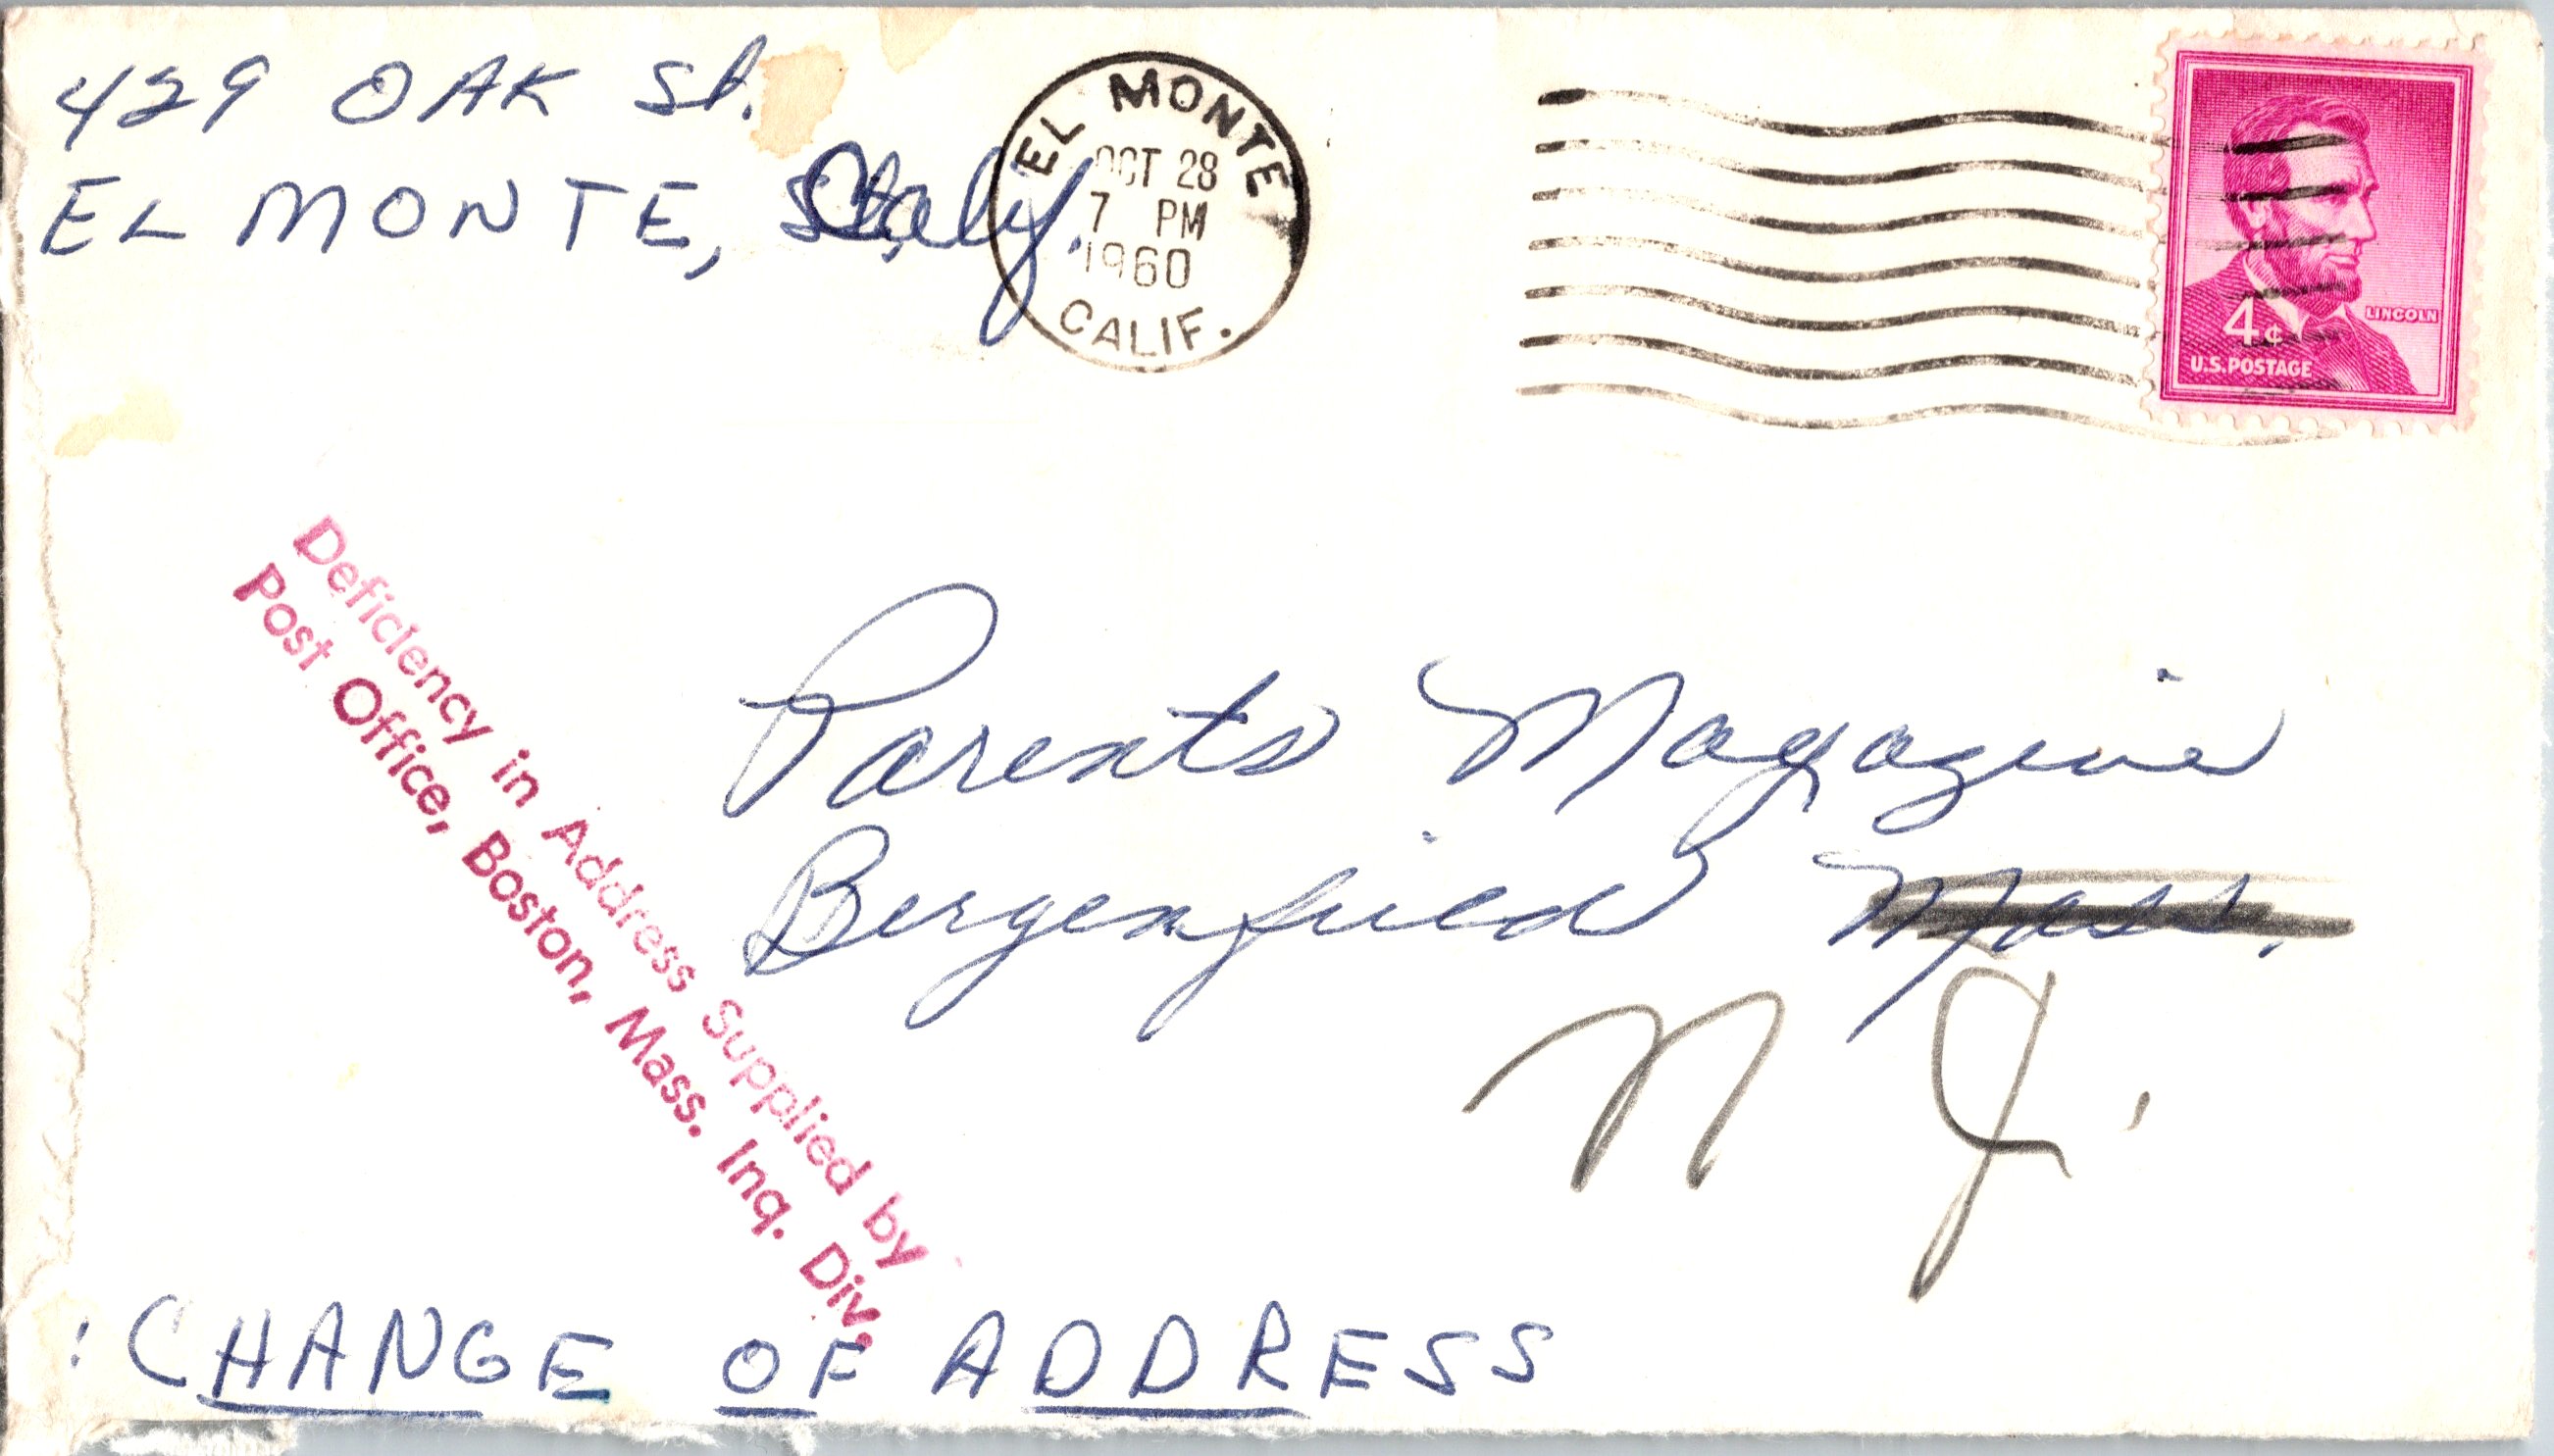 429 OAK St.
EL MONTE,
EL MONTE
OCT 28
7 PM
1960
CALIF.
LINCOLN
4¢
U.S. POSTAGE
Deficiency in Address Supplied by
Post Office, Boston, Mass. Inq. Div.
Parents Magazine
Bergenfield Mass.
N J.
CHANGE OF ADDRESS